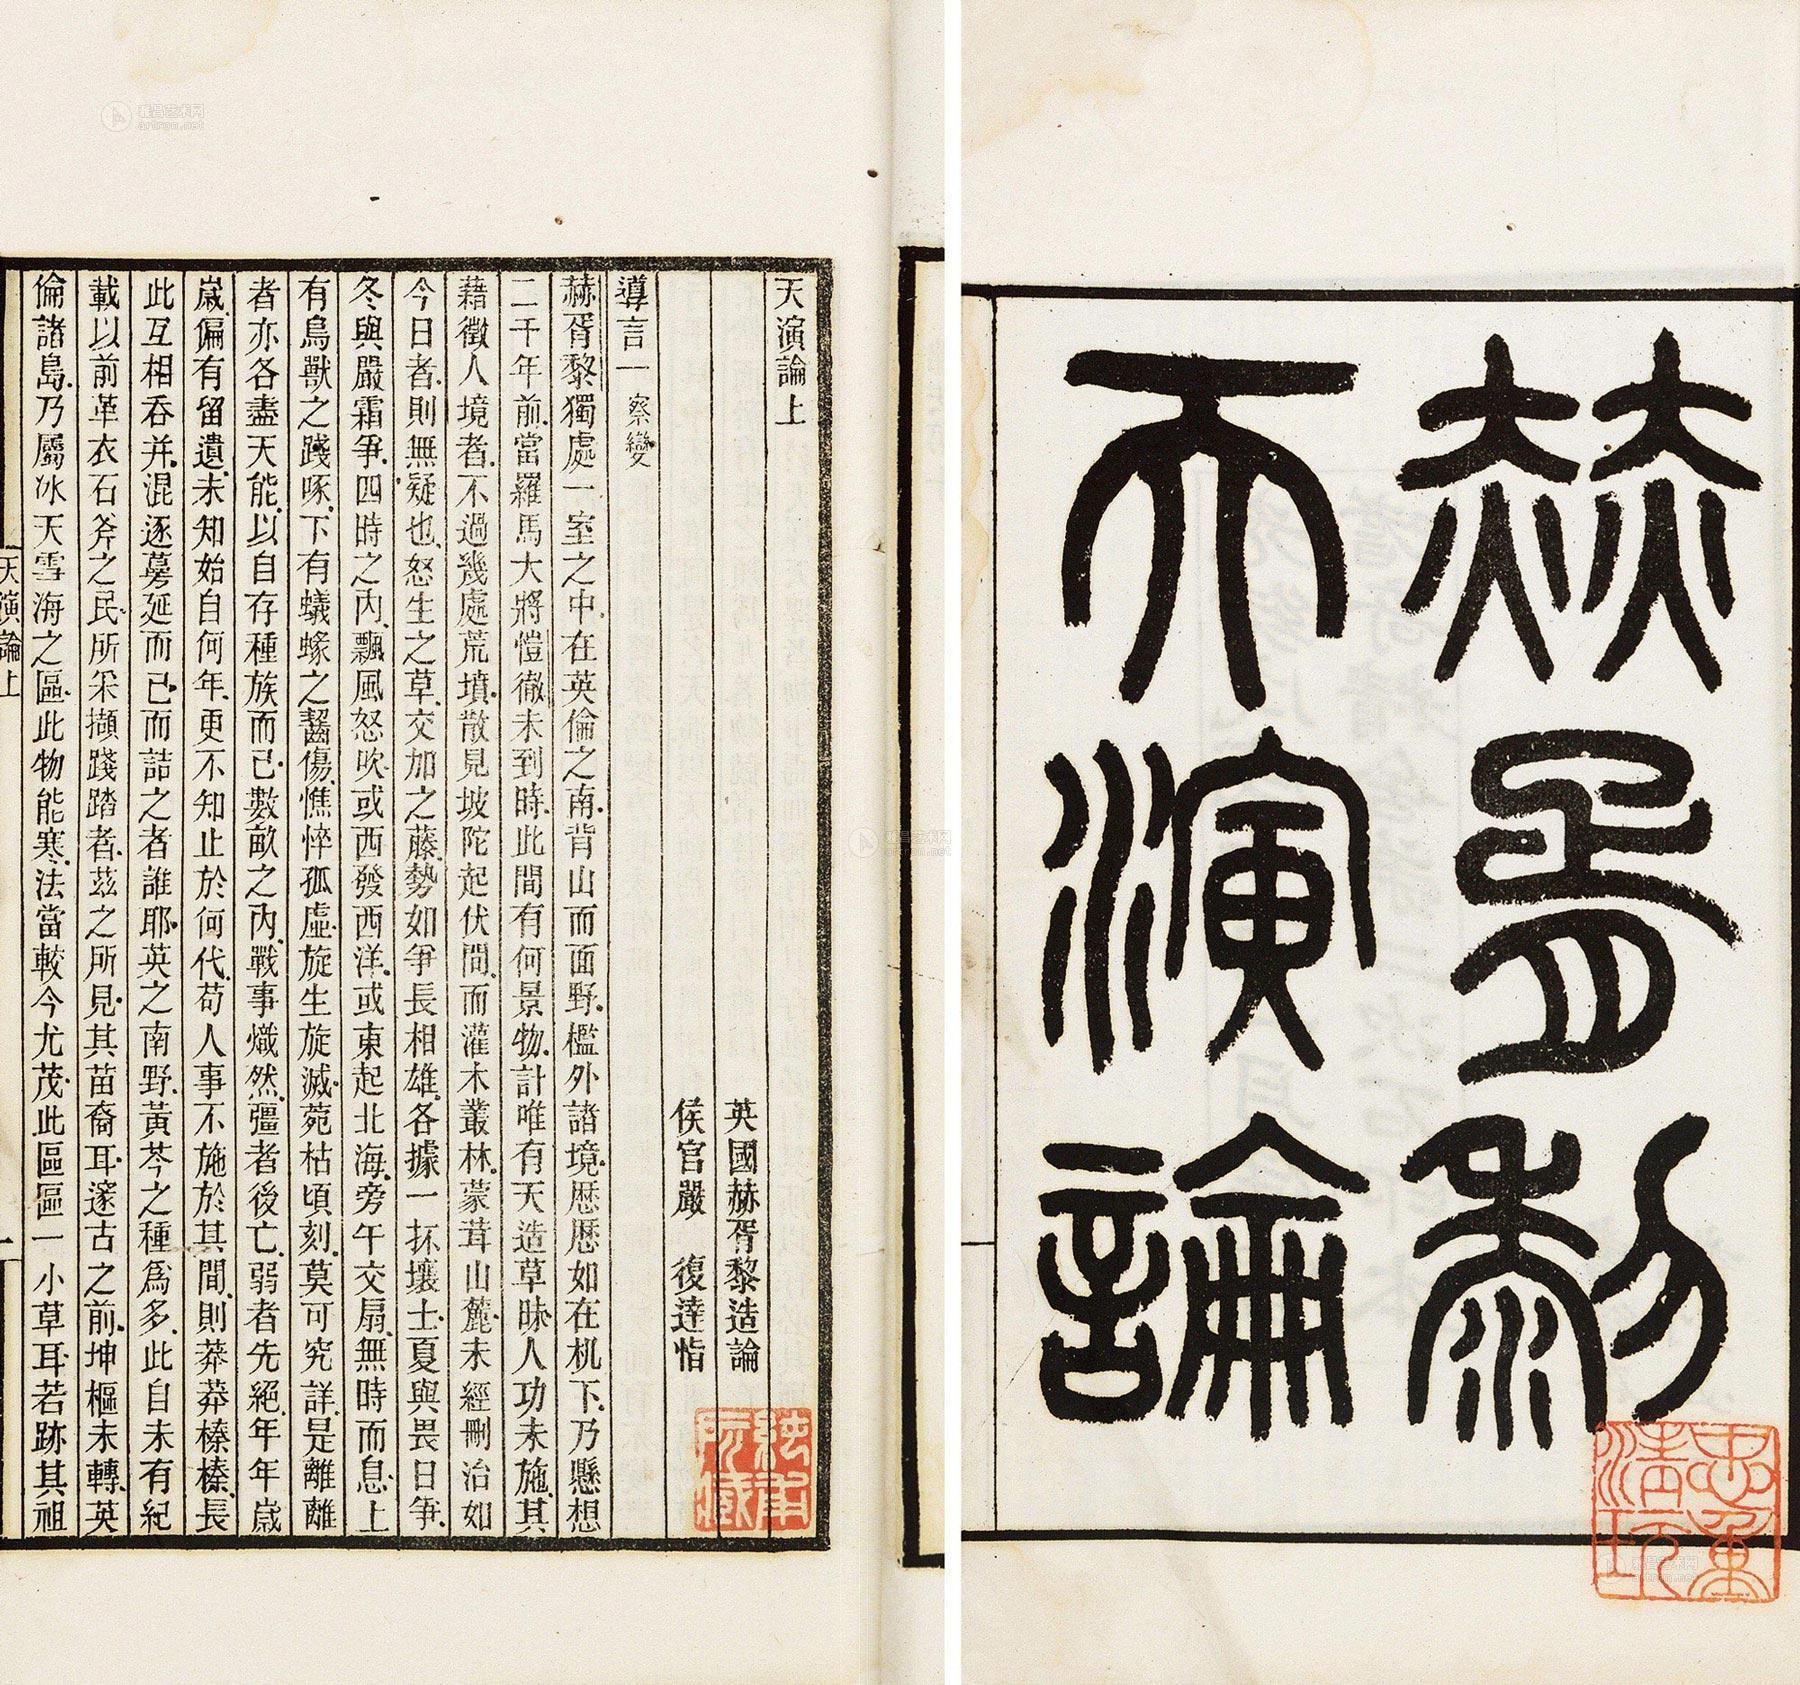 赫胥黎
天演論
天演論上
英國赫胥黎造論
侯官嚴 復達恉
導言一 察變
赫胥黎獨處一室之中.在英倫之南.背山而面野.檻外諸境.歷歷如在机下.乃懸想
二千年前.當羅馬大將愷徹未到時.此間有何景物.計唯有天造草昧.人功未施.其
藉徵人境者.不過幾處荒墳.散見坡陀起伏間.而灌木叢林.蒙茸山麓.未經刪治如
今日者.則無疑也.怒生之草.交加之藤.勢如爭長相雄.各據一抔壤土.夏與畏日爭.
冬與嚴霜爭.四時之內.飄風怒吹.或西發西洋.或東起北海.旁午交扇.無時而息.上
有鳥獸之踐啄.下有蟻蝝之齧傷.憔悴孤虛.旋生旋滅.菀枯頃刻.莫可究詳.是離離
者亦各盡天能.以自存種族而已.數畝之內.戰事熾然.彊者後亡.弱者先絕.年年歲
歲.偏有留遺.未知始自何年.更不知止於何代.苟人事不施於其間.則莽莽榛榛.長
此互相吞并.混逐蔓延而已.而詰之者誰耶.英之南野.黃芩之種爲多.此自未有紀
載以前.革衣石斧之民.所采擷踐踏者.茲之所見.其苗裔耳.邃古之前.坤樞未轉.英
倫諸島.乃屬冰天雪海之區.此物能寒.法當較今尤茂.此區區一小草耳.若跡其祖
天演論上
一
雅昌艺术网
artron.net